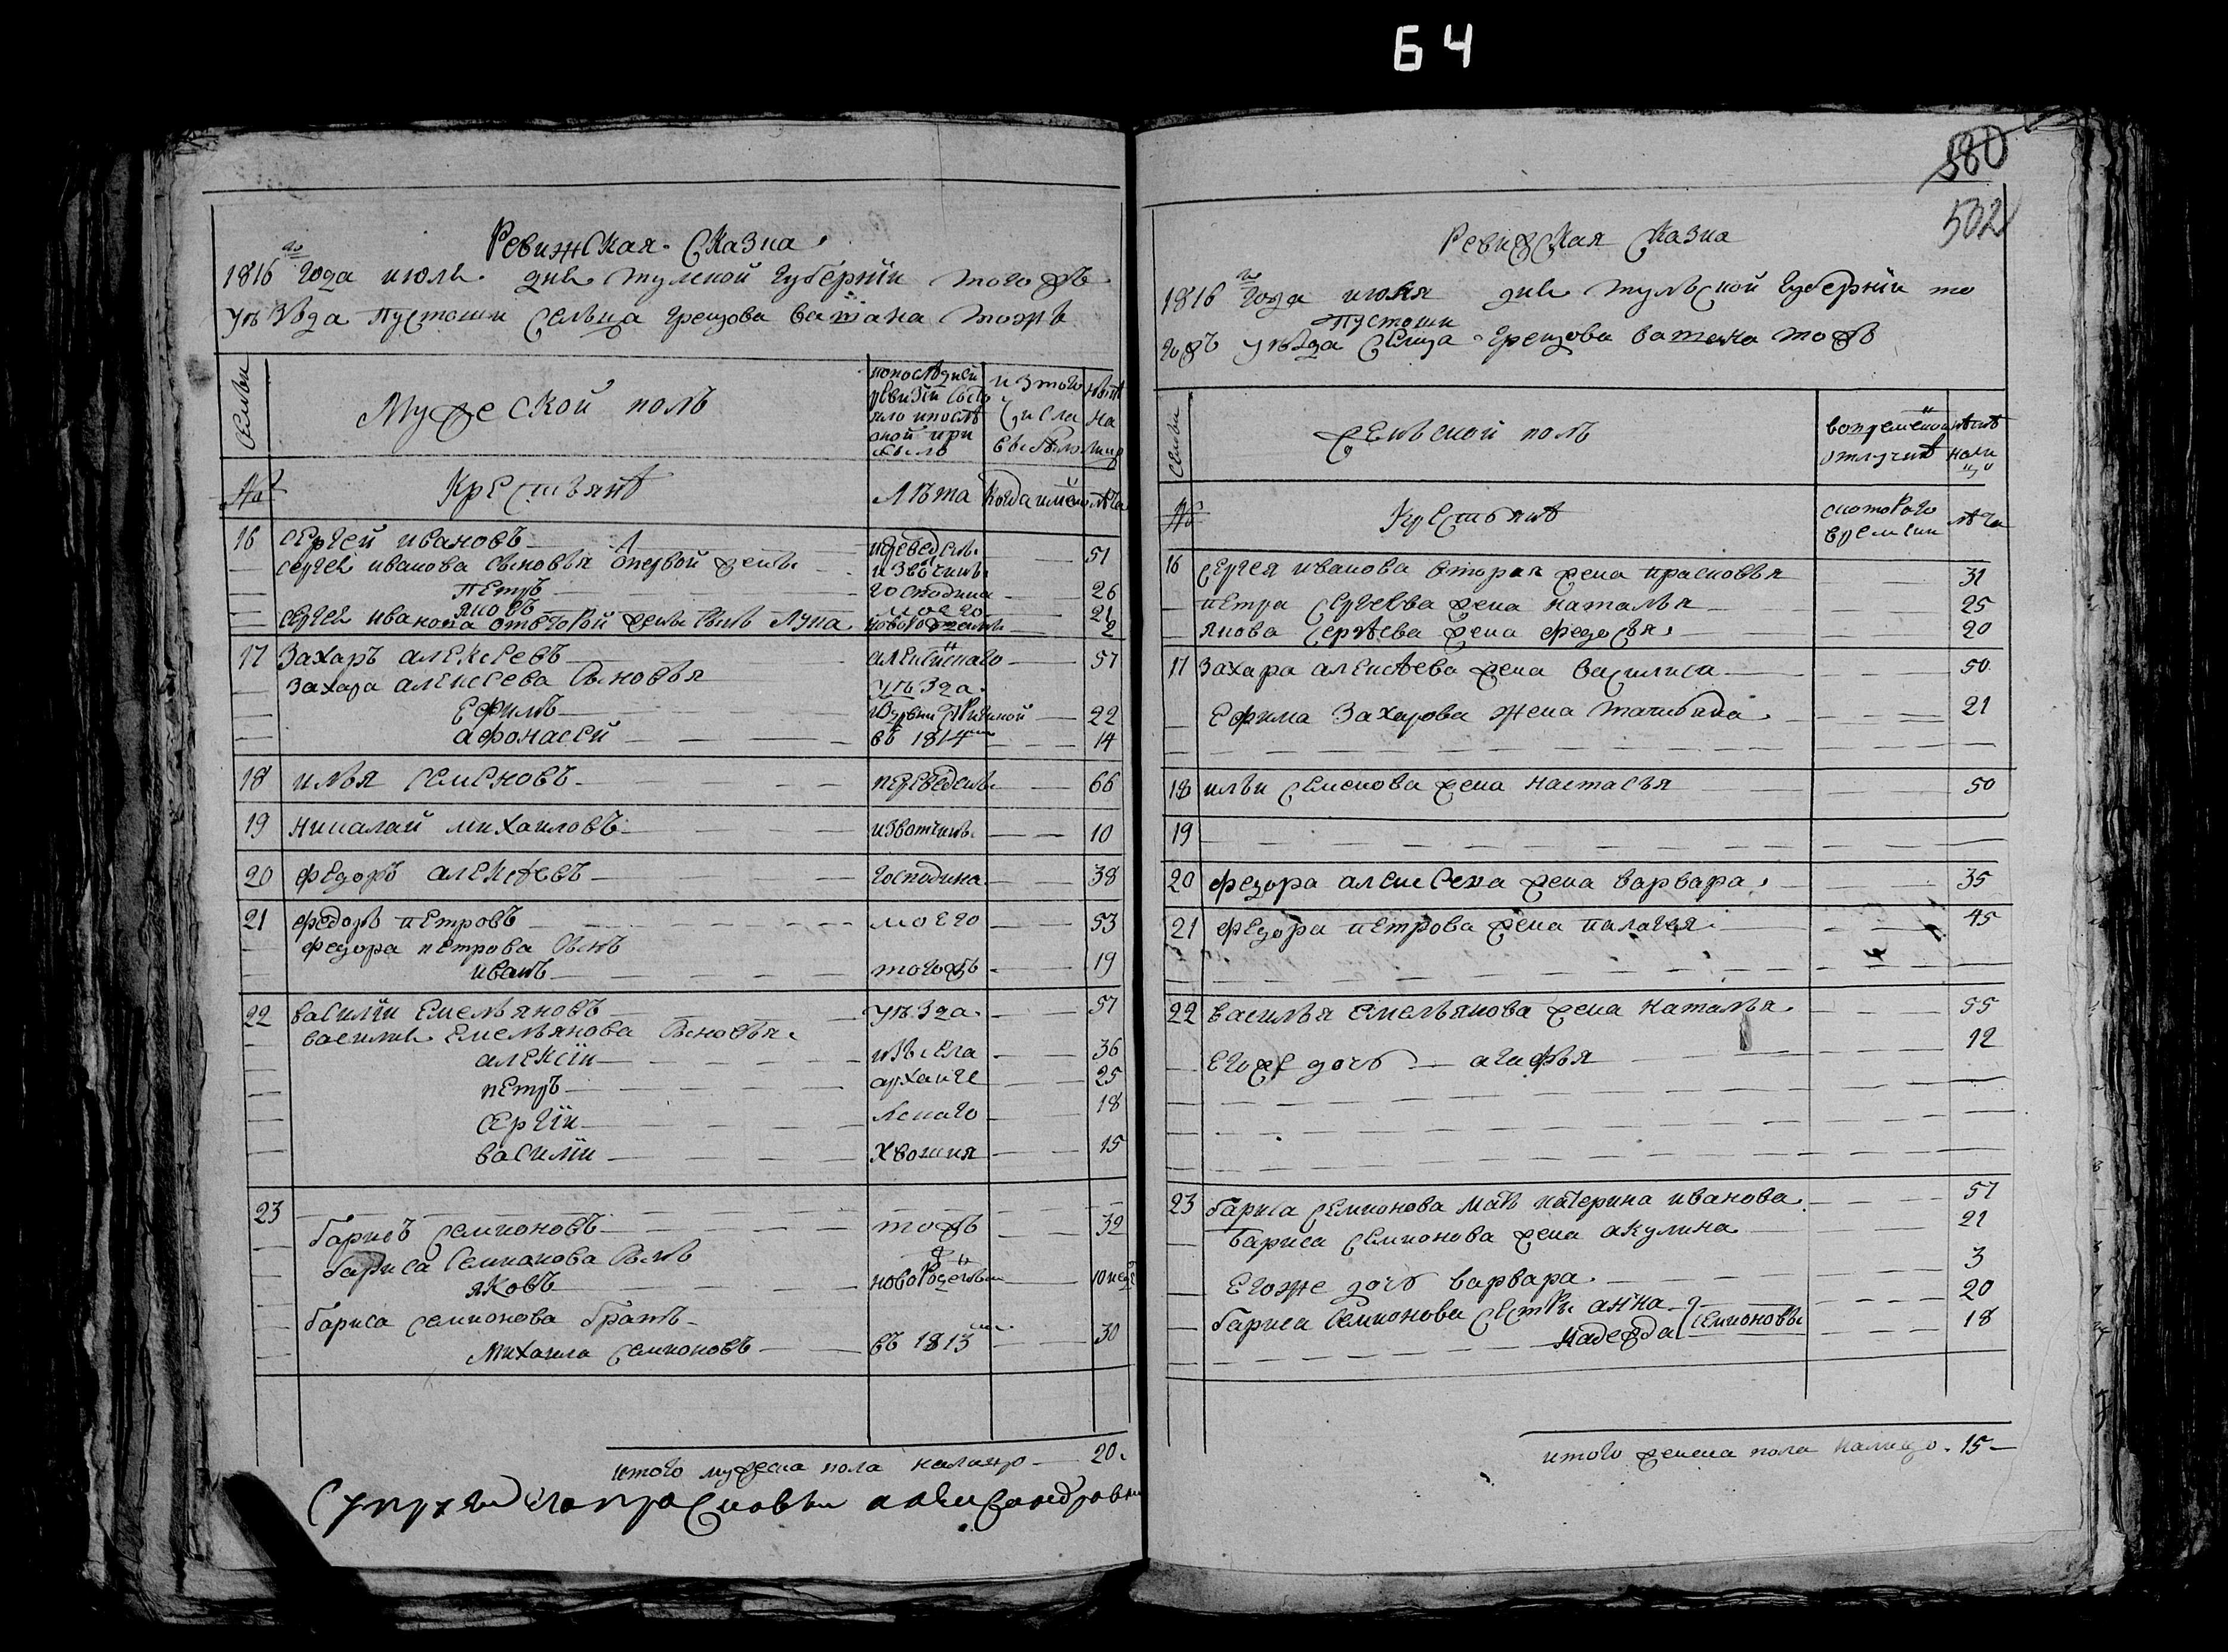 64
Ревижская Сказка
1816 го года июля дня тулской губернïи тогожъ
уѣзда пустоши селца грецова ватана тожъ
семьи
Мужеской полъ
попослѣдней ревизïи состояло ипослѣ оной прибыло
изтого числа выбыло
нынѣ на лицо
№
Крестьянѣ
Лѣта
когда имено
лѣта
16 Сергей ивановъ переведены 51
Сергея иванова сыновья отпервой жены извотчины
Петръ господина 26
яковъ моего 21
Сергея иванова отвторой жены сынъ Лука новорожденны 2
17 Захаръ алексеевъ 57
Захара алексеева сыновья уѣзда
Ефимъ 22
афонасей въ 1814м 14
18 илья семеновъ переведены 66
19 николай михаиловъ извотчины 10
20 федоръ алексѣевъ господина 38
21 федоръ петровъ моего 53
федора петрова сынъ
иванъ тогожъ 19
22 василïи емельяновъ уѣзда 57
василия емельянова сыновья
алексïи изъ села 36
петръ арханге 25
сергïи лскаго 18
василïи хвощня 15
23
барисъ семионовъ тожъ 32
бариса семионова сынъ
яковъ новорожденны 10 нед
бариса семионова братъ
михаила семионовъ въ 1813м 30
итого мужеска пола налицо 20
Супруги его прасковьи александровны
580
502
Ревижская сказка
1816 го года июля дня тульской губернïи то
гожъ уѣзда пустоши селца грецова ватана тожъ
семьи
женской полъ
вовременной отлучкѣ
нынѣ налицо
№
Крестьянѣ
скоторого времени
лѣта
16 Сергея иванова вторая жена прасковья 31
петра сергеева жена наталья 25
якова сергѣева жена федосья 20
17 Захара алексѣева жена василиса 50
Ефима Захарова жена татьяна 21
18 ильи семенова жена настасья 50
19
20 федора алексеева жена варвара 35
21 федора петрова жена палагея 45
22 василья емельянова жена наталья 55
Егоже дочь агафья 12
23 бариса семионова мать катерина иванова 57
бариса семионова жена акулина 21
Егоже дочь варвара 3
бариса семионова сестры анна 20
надежда семионовы 18
итого женска пола налицо 15